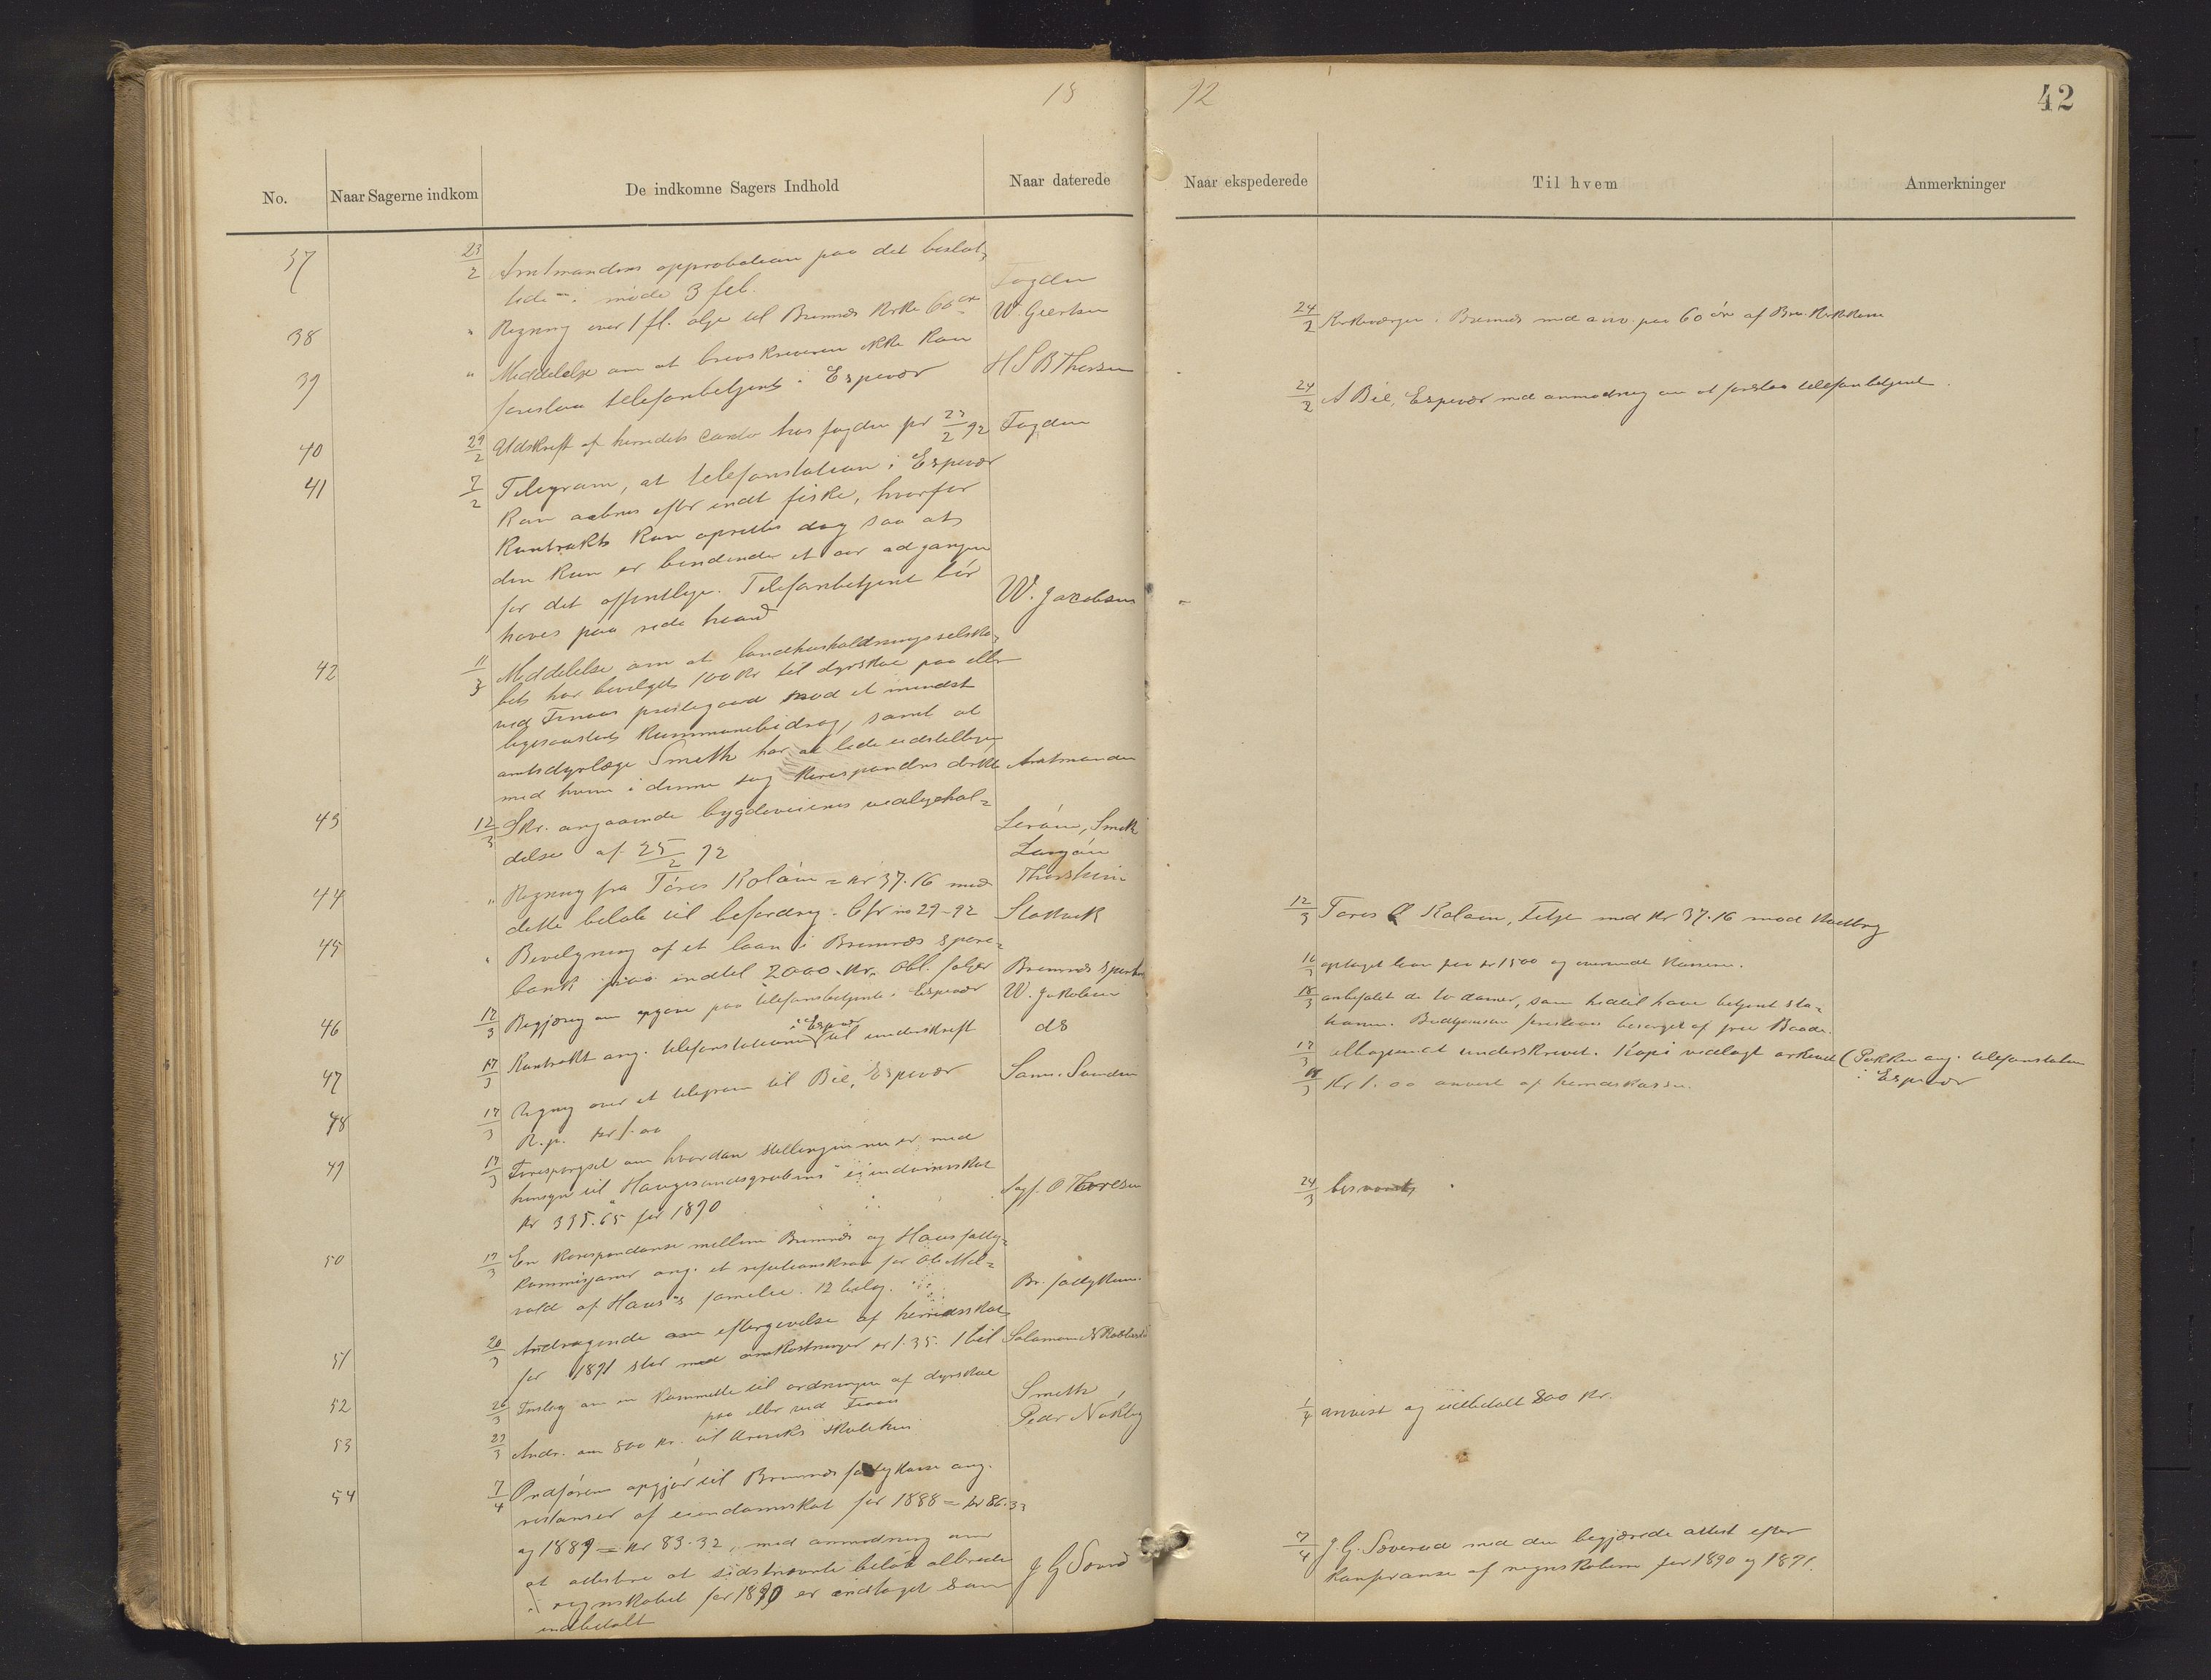 18
92
42
No.
Naar Sagerne indkom
De indkomne Sagers Indhold
Naar daterede
Naar ekspederede
Til hvem
Anmerkninger
37 23/2 Amtmandens approbation paa det beslut-
tede i møde 3 feb. Fogden
38 " Regning over 1 fl. olje til Bremnes kirke 60 øre W. Geertsen
24/2 Kirkeværgen i Bremnes med anv. paa 60 øre af Bre. Kirkekasse
39 " Meddelelse om at brevskriveren ikke kan
foreslaa telefonbetjent i Espevær H S B Thorsen
24/2 A Bie, Espevær med anmodning om at foreslaa telefonbetjent.
40 29/2 Udskrift af herredets conto hos fogden pr 23/2 92 Fogden
41 7/2 Telegram, at telefonstation i Espevær
kan aabnes efter endt fiske, hvorfor
kontrakt kan oprettes dog saa at
den kun er bindende et aar adgangen
for det offentlige. Telefonbetjent bør
haves paa rede haand W. Jacobsen
42 11/3 Meddelelse om at landhusholdningsselska-
bet har bevilget 100 kr til dyrskue paa eller
ved Finaas prestegaard mod et mindst
ligesaastort kommunebidrag, samt at
amtsdyrlæge Smith har at lede udstillingen
med hvem i denne sag korresponderes direkte Amtmanden
43 12/3 Skr. angaaende bygdeveienes vedligehol-
delse af 25/2 92
44 " Regning fra Tøres Koløen = kr 37.16 med
dette beløb til befordring. Cfr no 29-92
12/3 Tøres Koløen, Fitje med kr 37.16 mod kvittering
45 " Bevilgning af et laan i Bremnes spare-
bank paa indtil 2000 kr. Obl. følger
16/3 optaget laan paa kr 1500 og oversendt kassereren.
46 12/3 Begjæring om opgave paa telefonbetjente i Espevær W. Jakobsen
18/3 anbefalet de to damer, som hidtil have betjent sta-
tionen. Budtjenesten foreslaaes besørget af fru Baade.
47 17/3 Kontrakt ang. telefonstationen i Espevær til underskrift ds
17/3 tilbagesendt underskrevet. Kopi vedlagt arkivet (Pakken ang. telefonstation
i Espevær
48 17/3 Regning over et telegram til Bie, Espevær
R.p. kr 1.00
18/3 Kr 1.00 anvist af herredskassen.
49 17/3 Forespørgsel om hvordan stillingen nu er med
hensyn til "Haugesundsgrubens" eiendomsskat
kr 335.65 for 1890 Sagf. O Thoresen
24/3 besvaret
50 19/3 En korrespondanse mellem Bremnes og Haus fattig-
kommisjoner ang. et refusionskrav for Ole Mel-
vold af Haus's familie. 12 bilag. Br. fattigkom.
51 20/3 Andragende om eftergivelse af herredsskat
for 1891 stor med omkostninger kr 1.35. 1 bil
52 26/3 Forslag om en komitte til ordningen af dyrskue
paa eller ved Finaas Smith
53 29/3 Andr. om 800 kr. til skolehus
1/4 anvist og udbetalt 800 kr.
54 7/4 opgjør til Bremnes fattigkasse ang.
restanser af eiendomsskat for 1888 = kr 86.32
og 1889 = kr 83.32, med anmodning om
at attestere at sidstnævnte beløb allerede
i regnskabet for 1890 er indtaget som
indbetalt J G Sovereid
7/4 J G. Sovereid med den begjærede attest efter
konferanse af regnskaberne for 1890 og 1891.